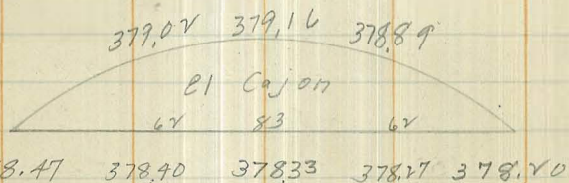 379.02 379.16 378.89
el Cajon
62 83 62
8.47 378.40 378.33 378.27 378.20